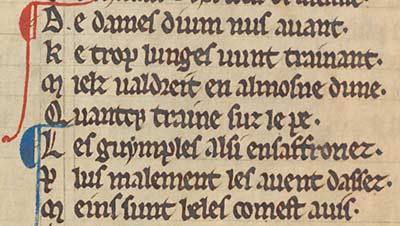 De dames dium nus auant.
Ke trop lunges uunt trainant.
Mielz ualdreit en almosne dune.
Quantep traine sur le pe.
Les guymples alsi ensaffronez.
Plus malement les auent dassez.
Meins sunt beles comest auis.